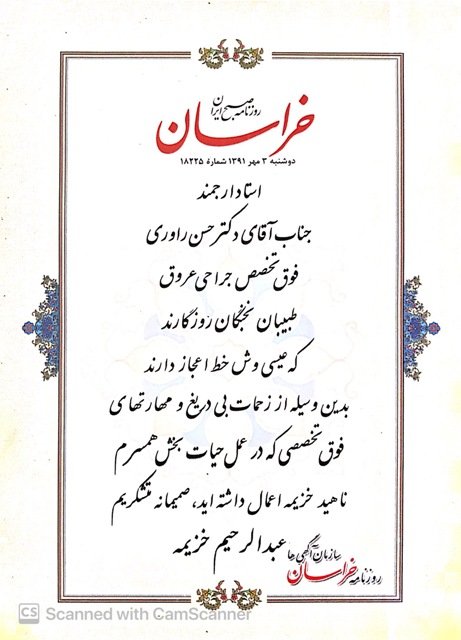 روزنامه صبح ایران
خراسان
دوشنبه ۳ مهر ۱۳۹۱ شمارهٔ ۱۸۲۲۵
استاد ارجمند
جناب آقای دکتر حسن راوری
فوق تخصص جراحی عروق
طبیبان نخبگان روزگارند
که عیسی وش خط اعجاز دارند
بدین وسیله از زحمات بی دریغ و مهارتهای
فوق تخصصی که در عمل حیات بخش همسرم
ناهید خزیمه اعمال داشته اید، صمیمانه متشکریم
عبدالرحیم خزیمه
سازمان آگهی ها
روزنامه خراسان
CS Scanned with CamScanner